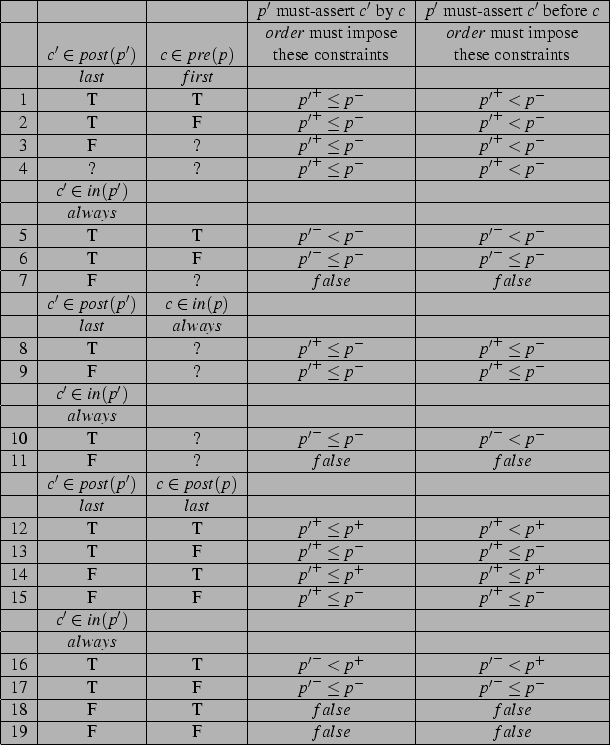 p′ must-assert c′ by c p′ must-assert c′ before c
order must impose order must impose
c′ ∈ post(p′) c ∈ pre(p) these constraints these constraints
last first
1 T T p′⁺ ≤ p⁻ p′⁺ < p⁻
2 T F p′⁺ ≤ p⁻ p′⁺ < p⁻
3 F ? p′⁺ ≤ p⁻ p′⁺ < p⁻
4 ? ? p′⁺ ≤ p⁻ p′⁺ < p⁻
c′ ∈ in(p′)
always
5 T T p′⁻ < p⁻ p′⁻ < p⁻
6 T F p′⁻ ≤ p⁻ p′⁻ ≤ p⁻
7 F ? false false
c′ ∈ post(p′) c ∈ in(p)
last always
8 T ? p′⁺ ≤ p⁻ p′⁺ ≤ p⁻
9 F ? p′⁺ ≤ p⁻ p′⁺ ≤ p⁻
c′ ∈ in(p′)
always
10 T ? p′⁻ ≤ p⁻ p′⁻ < p⁻
11 F ? false false
c′ ∈ post(p′) c ∈ post(p)
last last
12 T T p′⁺ ≤ p⁺ p′⁺ < p⁺
13 T F p′⁺ ≤ p⁻ p′⁺ ≤ p⁻
14 F T p′⁺ ≤ p⁺ p′⁺ ≤ p⁺
15 F F p′⁺ ≤ p⁻ p′⁺ ≤ p⁻
c′ ∈ in(p′)
always
16 T T p′⁻ < p⁺ p′⁻ < p⁺
17 T F p′⁻ ≤ p⁻ p′⁻ ≤ p⁻
18 F T false false
19 F F false false